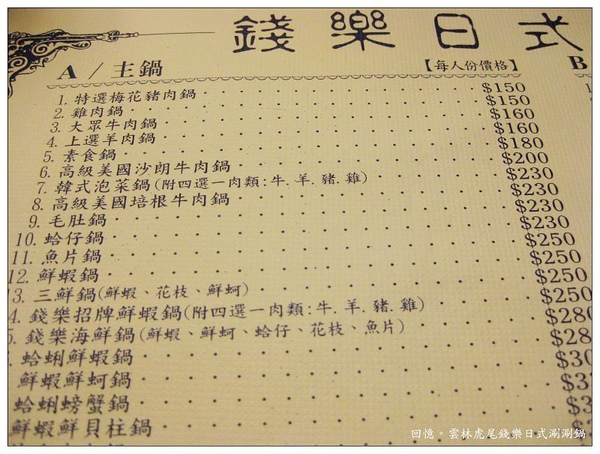 錢樂日式
A / 主鍋 【每人份價格】 B
1. 特選梅花豬肉鍋 $150
2. 雞肉鍋 $150
3. 大眾牛肉鍋 $160
4. 上選羊肉鍋 $160
5. 素食鍋 $180
6. 高級美國沙朗牛肉鍋 $200
7. 韓式泡菜鍋(附四選一肉類:牛.羊.豬.雞) $230
8. 高級美國培根牛肉鍋 $230
9. 毛肚鍋 $230
10. 蛤仔鍋 $230
11. 魚片鍋 $250
12. 鮮蝦鍋 $250
3. 三鮮鍋(鮮蝦、花枝、鮮蚵) $250
4. 錢樂招牌鮮蝦鍋(附四選一肉類:牛.羊.豬.雞) $250
5. 錢樂海鮮鍋(鮮蝦、鮮蚵、蛤仔、花枝、魚片) $280
蛤蜊鮮蝦鍋 $28
鮮蝦鮮蚵鍋 $30
蛤蜊螃蟹鍋 $3
鮮蝦鮮貝柱鍋 $3
回憶。雲林虎尾錢樂日式涮涮鍋